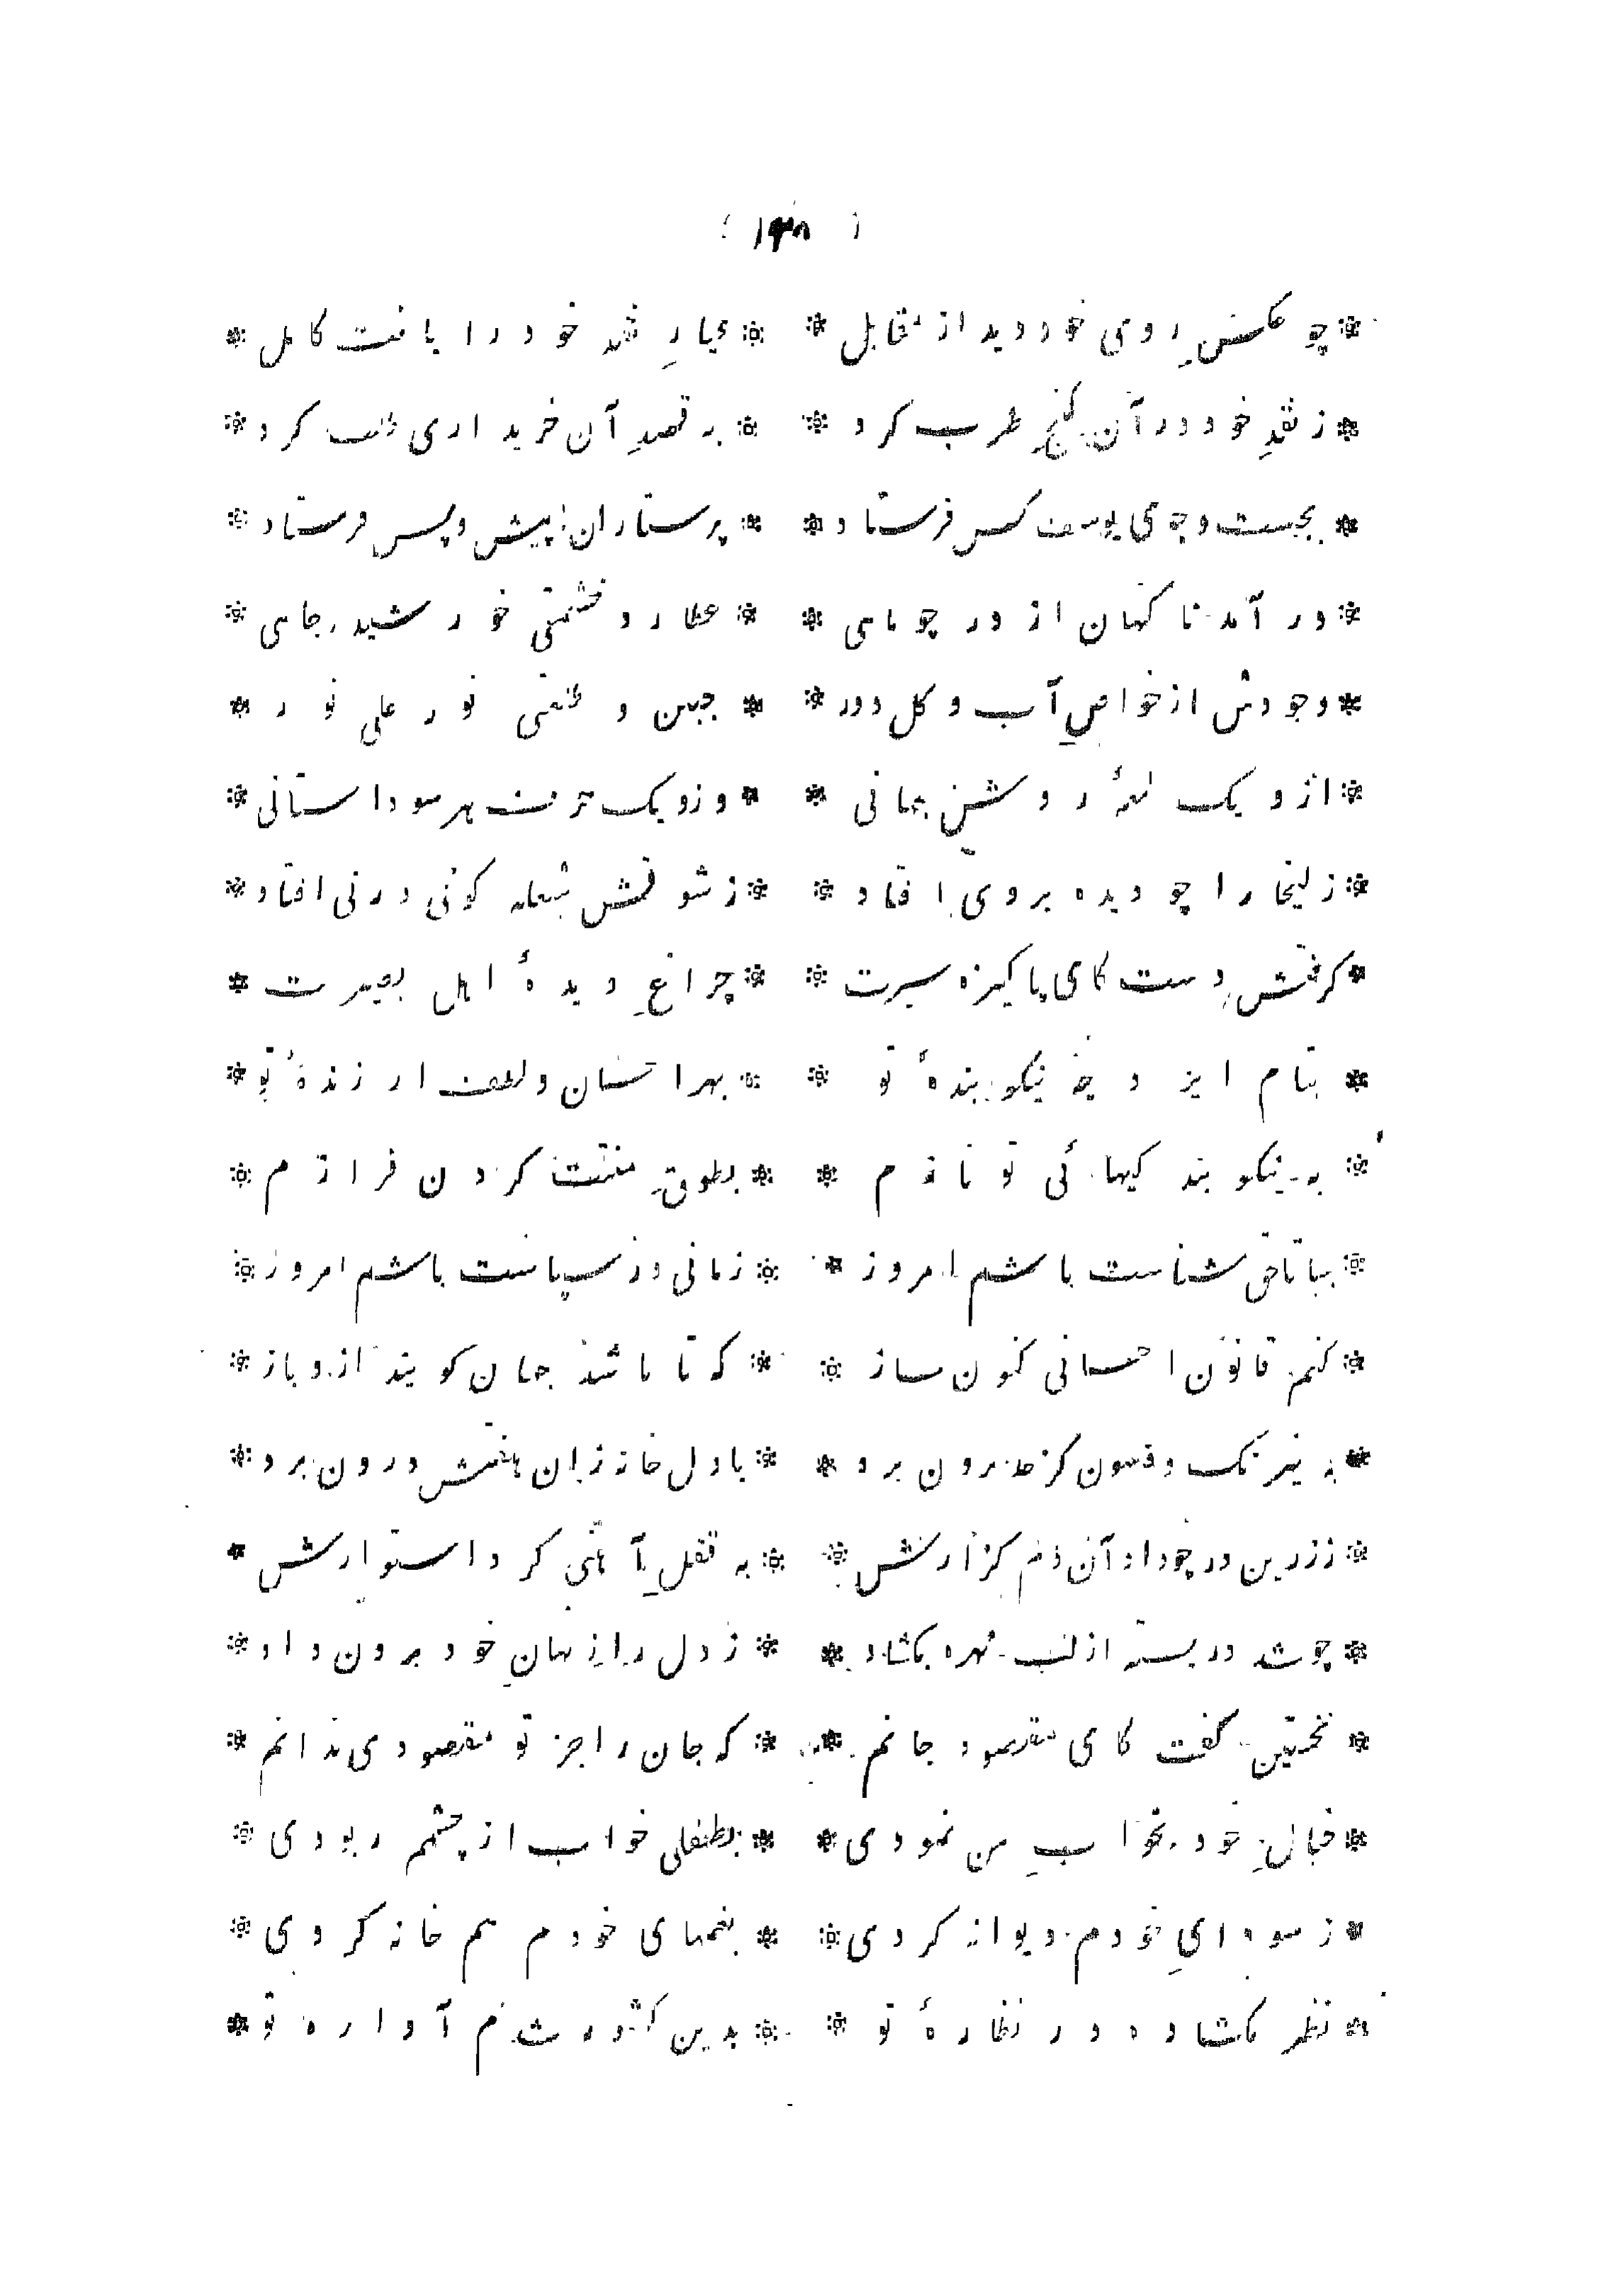 ( ۱۴۸ )
* چو عکسِ روی خود دید از مقابل * * عیارِ نقدِ خود را یافت کامل *
* ز نقدِ خود در آن گنجِ طرب کرد * * به قصدِ آن خریداری طلب کرد *
* بجست و جوی یوسف کس فرستاد * * پرستاران ز پیش و پس فرستاد *
* در آمد ناگهان از در چو ماهی * * عطارد حشمتی خورشید جاهی *
* وجودش از خواصِ آب و گل دور * * جبین و طلعتی نور علی نور *
* ازو یک لمعهٔ روشن جهانی * * وزو یک حرف هر سو داستانی *
* زلیخا را چو دیده بروی افتاد * * ز شوقش شعله گوئی در نی افتاد *
* گرفتش دست کای پاکیزه سیرت * * چراغِ دیدهٔ اهل بصیرت *
* بنام ایزد چه نیکو بندهٔ تو * * بهر احسان و لطف ارزندهٔ تو *
* به نیکو بندگیهائی تو نازم * * بطوقِ منتت گردن فرازم *
* بیا تا حق شناست باشم امروز * * زمانی در سپاست باشم امروز *
* کنم قانون احسانی کنون ساز * * که تا باشد جهان گویند ازو باز *
* به نیرنگ و فسون کز حد برون برد * * باول خانه زان هفتش درون برد *
* ز زرین در چو داد آن دم گزارش * * به قفلِ آهنی کرد استوارش *
* چو شد در بسته از لب مهره بگشاد * * ز دل رازِ نهانِ خود برون داد *
* نخستین گفت کای مقصود جانم * * که جان را جز تو مقصودی ندانم *
* خیالِ خود بخوابِ من نمودی * * بطفلی خواب از چشمم ربودی *
* ز سودایِ خودم دیوانه کردی * * بغمهای خودم هم خانه کردی *
* نظر نگشاده در نظارهٔ تو * * بدین کشور شدم آوارهٔ تو *